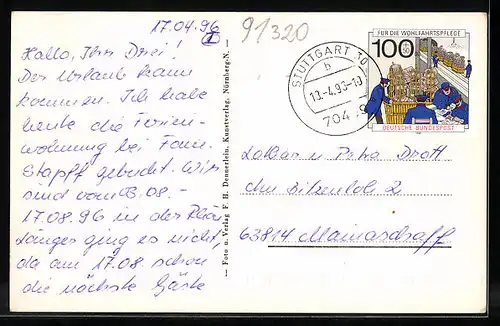 17.04.96
91320
Hallo, Ihr Drei!
Der Urlaub kann
kommen. Ich habe
heute die Ferien-
wohnung bei Fam.
Stapff gebucht. Wir
sind vom 03.08.-
17.08.96 in der
länger ging es nicht,
da am 17.08. schon
die nächste Gäste
— Foto u. Verlag F. H. Dennerlein, Kunstverlag, Nürnberg-N. —
STUTTGART 30
b
704
FÜR DIE WOHLFAHRTSPFLEGE
100
DEUTSCHE BUNDESPOST
Lothar u. Petra Drott
2
63814 Mainaschaff